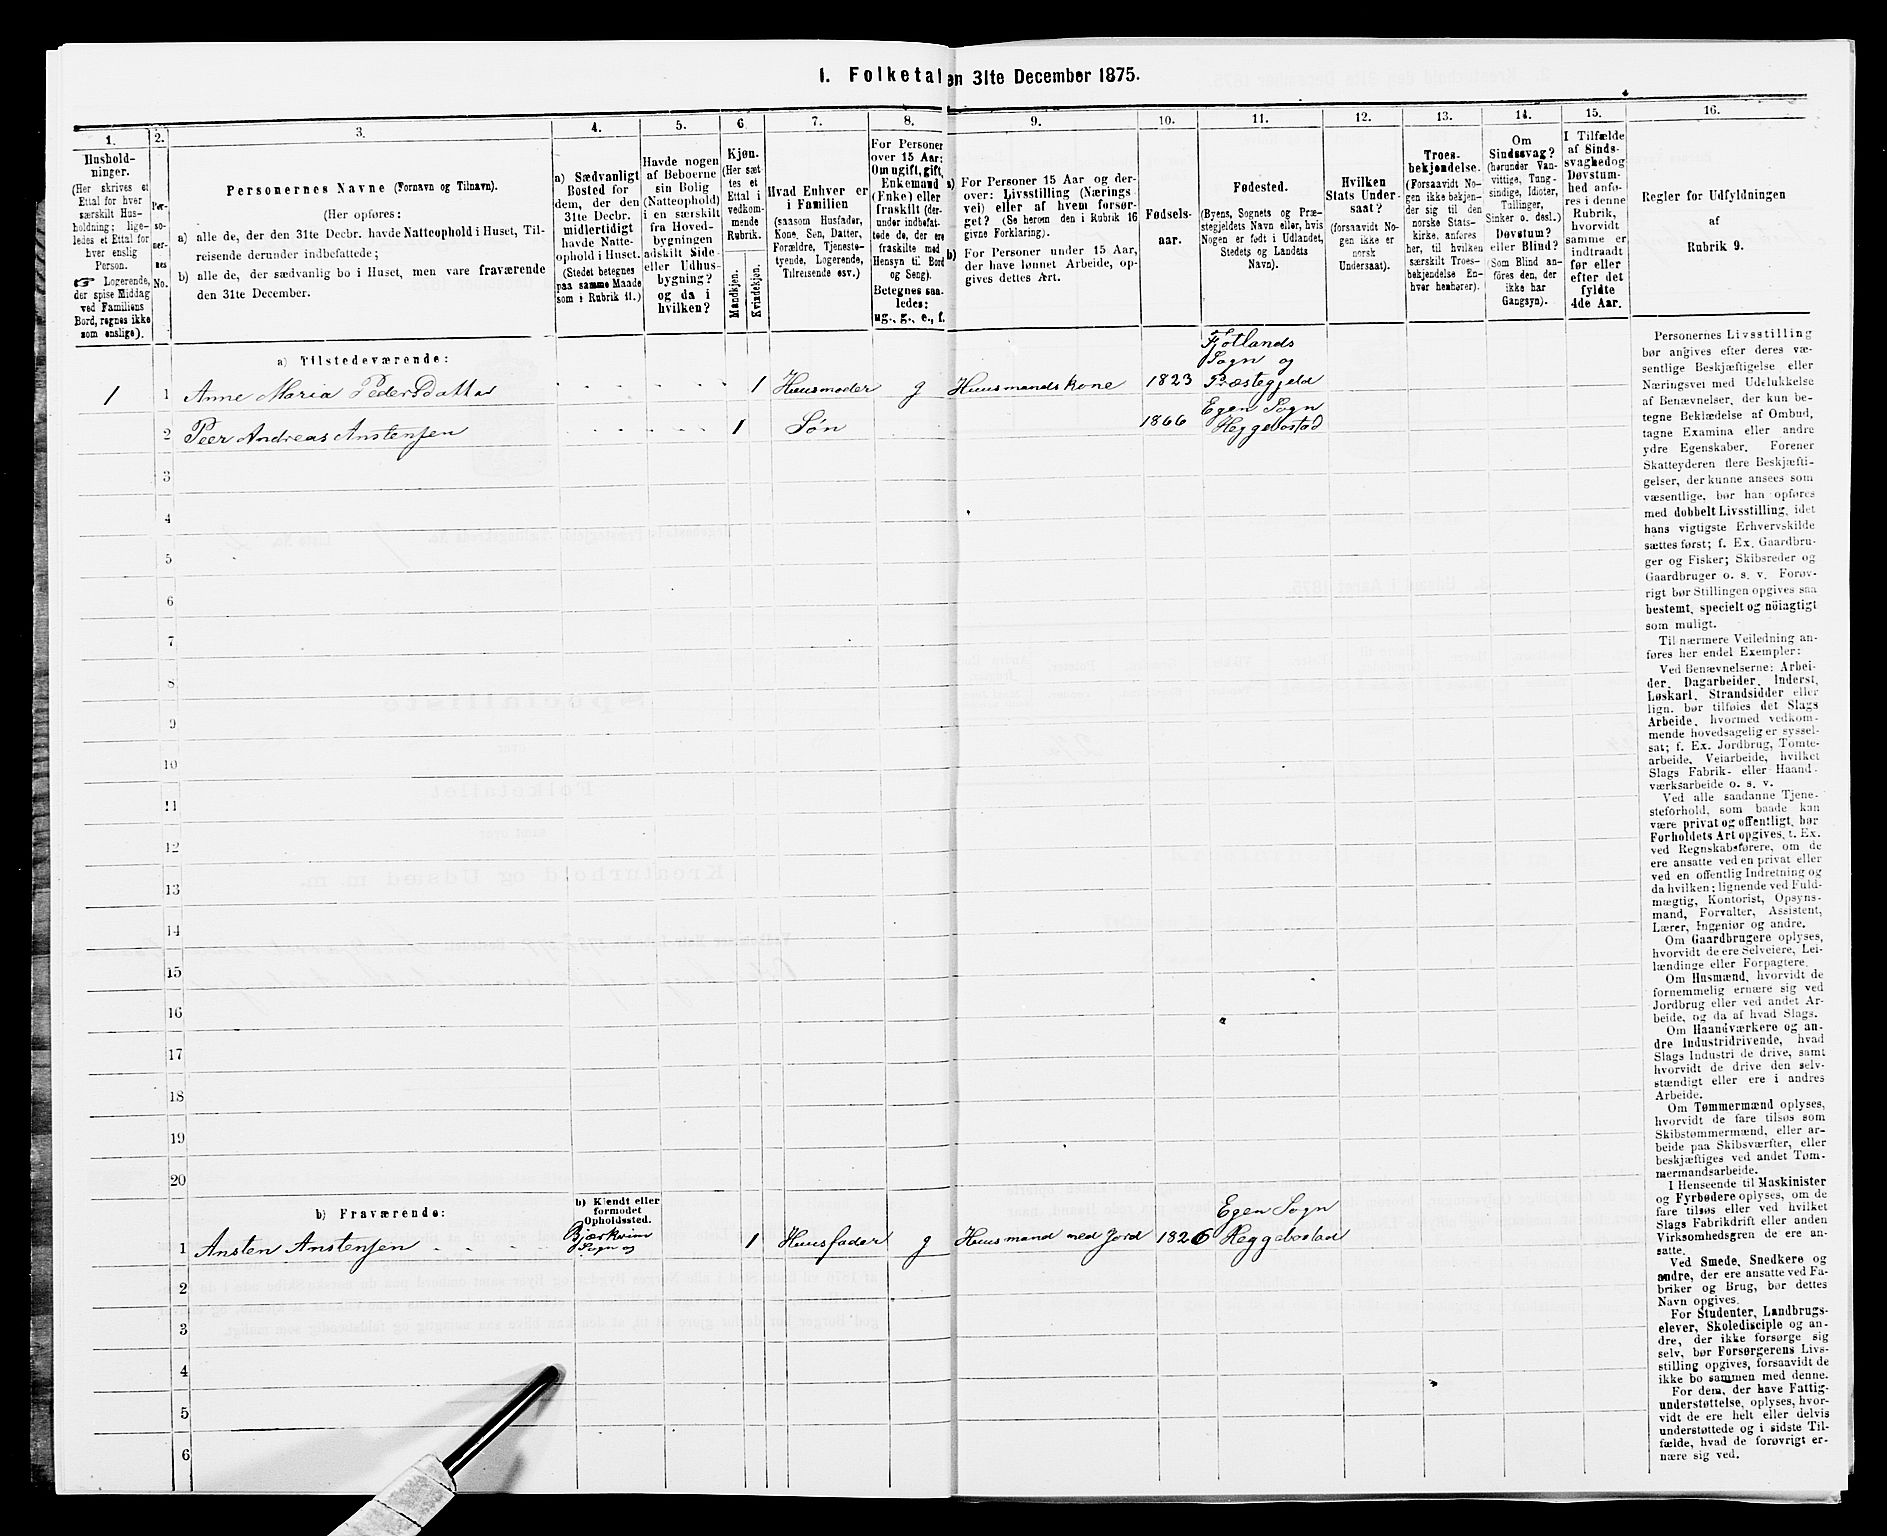 1. Folketal en 31te December 1875.
1.
Hushold-
ninger.
(Her skrives et
Ettal for hver
særskilt Hus-
holdning; lige-
ledes et Ettal for
hver enslig
Person.
☞ Logerende,
der spise Middag
ved Familiens
Bord, regnes ikke
som enslige).
2.
Per-
so-
ner-
nes
No.
3.
Personernes Navne (Fornavn og Tilnavn).
(Her opføres:
a) alle de, der den 31te Decbr. havde Natteophold i Huset, Til-
reisende derunder indbefattede;
b) alle de, der sædvanlig bo i Huset, men vare fraværende
den 31te December.
4.
a) Sædvanligt
Bosted for
dem, der den
31te Decbr.
midlertidigt
havde Natte-
ophold i Huset.
(Stedet betegnes
paa samme Maade
som i Rubrik 11.)
5.
Havde nogen
af Beboerne
sin Bolig
(Natteophold)
i en særskilt
fra Hoved-
bygningen
adskilt Side-
eller Udhus-
bygning?
og da i
hvilken?
6
Kjøn.
(Her sæt-
tes et
Ettal i
vedkom-
mende
Rubrik.
Mandkjøn.
Kvindekjøn.
7.
Hvad Enhver er
i Familien
(saasom Husfader,
Kone, Søn, Datter,
Forældre, Tjeneste-
tyende, Logerende,
Tilreisende osv.)
8.
For Personer
over 15 Aar:
Om ugift, gift,
Enkemand
(Enke) eller
fraskilt (der-
under indbefat-
tede de, der ere
fraskilte med
Hensyn til Bord
og Seng).
Betegnes saa-
ledes:
ug., g., e., f.
9.
a) For Personer 15 Aar og der-
over: Livsstilling (Nærings
vei) eller af hvem forsør-
get? (Se herom den i Rubrik 16
givne Forklaring).
b) For Personer under 15 Aar,
der have lønnet Arbeide, op-
gives dettes Art.
10.
Fødsels-
aar.
11.
Fødested.
(Byens, Sognets og Præ-
stegjeldets Navn eller, hvis
Nogen er født i Udlandet,
Stedets og Landets
Navn).
12.
Hvilken
Stats Under-
saat?
(forsaavidt No-
gen ikke er
norsk
Undersaat).
13.
Troes-
bekjendelse.
(Forsaavidt No-
gen ikke bekjen-
der sig til den
norske Stats-
kirke, anføres
her, til hvilken
særskilt Troes-
bekjendelse En-
hver henhører).
14.
Om
Sindssvag?
(herunder Van-
vittige, Tung-
sindige, Idioter,
Tullinger,
Sinker o. desl.)
Døvstum?
eller Blind?
(Som Blind an-
føres den, der
ikke har
Gangsyn).
15.
I Tilfælde
af Sinds-
svaghed og
Døvstum-
hed anfø-
res i denne
Rubrik,
hvorvidt
samme er
indtraadt
før eller
efter det
fyldte
4de Aar.
16.
Regler for Udfyldningen
af
Rubrik 9.
a) Tilstedeværende:
1 1 Anne Maria PedersDatter 1 Huusmoder g Huusmands kone 1823 Fjotlands Sogn og Præstegjeld
2 Peer Andreas Anstensen 1 Søn 1866 Egen Sogn Heggebostad
3
4
5
6
7
8
9
10
11
12
13
14
15
16
17
18
19
20
b) Fraværende:
b) Kjendt eller
formodet
Opholdssted.
1 Ansten Anstensen Bjærkreim Sogn og 1 Huusfader g Huusmand med Jord 1826 Egen Sogn Heggebostad
2
3
4
5
6
Personernes Livsstilling
bør angives efter deres væ-
sentlige Beskjæftigelse eller
Næringsvei med Udelukkelse
af Benævnelser, der kun be-
tegne Beklædelse af Ombud,
tagne Examina eller andre
ydre Egenskaber. Forener
Skatteyderen flere Beskjæfti-
gelser, der kunne ansees som
væsentlige, bør han opføres
med dobbelt Livsstilling, idet
hans vigtigste Erhvervskilde
sættes først; f. Ex. Gaardbru-
ger og Fisker; Skibsreder og
Gaardbruger o. s. v. Forøv-
rigt bør Stillingen opgives saa
bestemt, specielt og nöiagtigt
som muligt.
Til nærmere Veiledning an-
føres her endel Exempler:
Ved Benævnelserne: Arbei-
der, Dagarbeider, Inderst,
Løskarl, Strandsidder eller
lign. bør tilføies det Slags
Arbeide, hvormed vedkom-
mende hovedsagelig er syssel-
sat; f. Ex. Jordbrug, Tomte-
arbeide, Veiarbeide, hvilket
Slags Fabrik- eller Haand-
værksarbeide o. s. v.
Ved alle saadanne Tjene-
steforhold, som baade kan
være privat og offentligt, bør
Forholdets Art opgives, t. Ex.
ved Regnskabsførere, om de
ere ansatte ved en privat eller
ved en offentlig Indretning og
da hvilken; lignende ved Fuld-
mægtig, Kontorist, Opsyns-
mand, Forvalter, Assistent,
Lærer, Ingeniør og andre.
Om Gaardbrugere oplyses,
hvorvidt de ere Selveiere, Lei-
lændinge eller Forpagtere.
Om Husmænd, hvorvidt de
fornemmelig ernære sig ved
Jordbrug eller ved andet Ar-
beide, og da af hvad Slags.
Om Haandværkere og an-
dre Industridrivende, hvad
Slags Industri de drive, samt
hvorvidt de drive den selv-
stændigt eller ere i andres
Arbeide.
Om Tømmermænd oplyses,
hvorvidt de fare tilsøs som
Skibstømmermænd, eller ar-
beide paa Skibsværfter, eller
beskjæftiges ved andet Tøm-
mermandsarbeide.
I Henseende til Maskinister
og Fyrbødere oplyses, om de
fare tilsøs eller ved hvilket
Slags Fabrikdrift eller anden
Virksomhedsgren de ere an-
satte.
Ved Smede, Snedkere og
andre, der ere ansatte ved Fa-
briker og Brug, bør dettes
Navn opgives.
For Studenter, Landbrugs-
elever, Skoledisciple og an-
dre, der ikke forsørge sig
selv, bør Forsørgerens Livs-
stilling opgives, forsaavidt de
ikke bo sammen med denne.
For dem, der have Fattig-
understøttelse, oplyses, hvor-
vidt de ere helt eller delvis
understøttede og i sidste Til-
fælde, hvad de forøvrigt er-
nære sig ved.